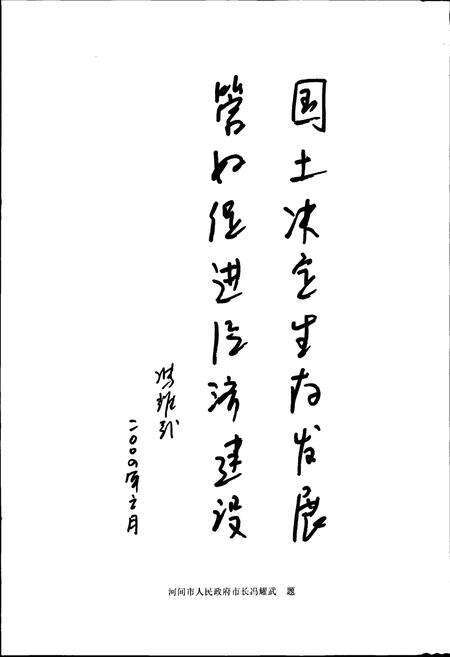 国土决定生存发展
管好促进经济建设
冯耀武
二〇〇〇年三月
河间市人民政府市长冯耀武 题